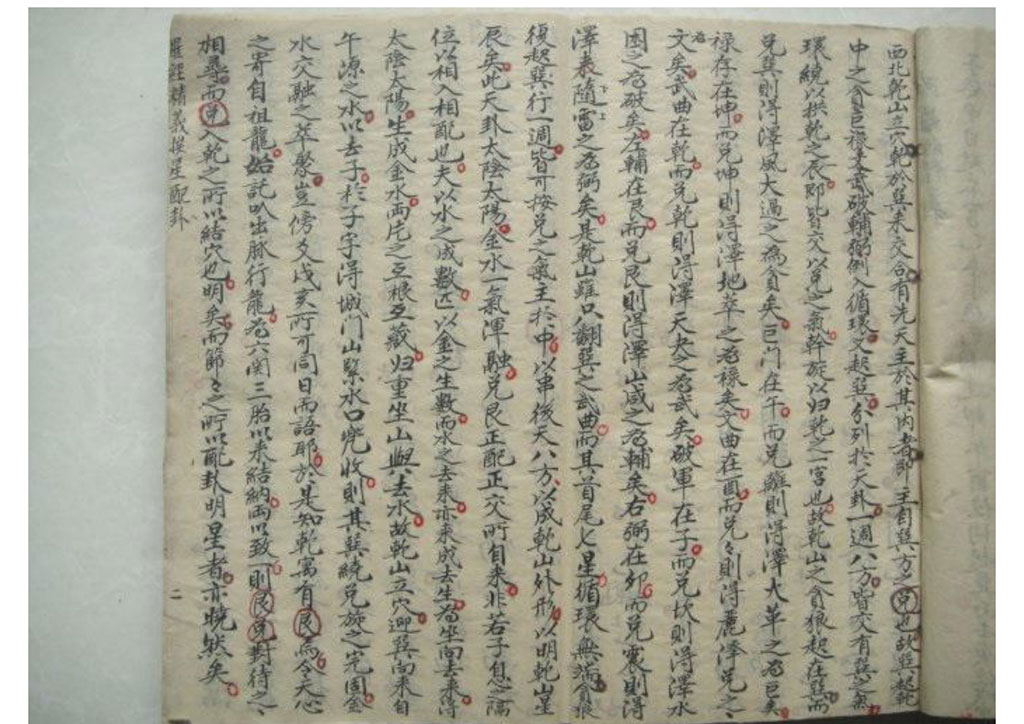 西北乾山立穴乾於巽来交合有先天主於其内者即主自巽方之兌也故巽起乾
中之貪巨禄文武破輔弼例入循環又起巽分列於天卦一週八方皆交有巽之氣
環繞以拱乾之辰即皆交以兌之氣幹旋以归乾之一宮也故乾山之貪狼起在巽而
兌巽則得澤風大過之為貪矣巨門在午而兌離則得澤火革之為巨矣
禄存在坤而兌坤則得澤地萃之为禄矣文曲在酉而兌々則得麗澤兌之
为文矣武曲在乾而兌乾則得澤天夬之为武矣破軍在子而兌坎則得澤水
困之为破矣左輔在艮而兌艮則得澤山咸之为輔矣右弼在卯而兌震則得
澤来隨雷之为弼矣其乾山雖只翻巽之武曲而其首尾七星循環無端貪狼
復起巽行一週皆可按兌之氣主於中以串後天八方以成乾山外形以明乾星
辰矣此天卦太陰太陽金水一氣渾融兌艮正配正穴所自来非若子息之隔
位以相入相配也夫以水之成數匹以金之生數而水之去来亦来成去生为坐向去来得
太陰太陽生成金水両片之互根互藏归重坐山與去水故乾山立穴迎巽向来自
午源之水以去子於子字得城門山緊水口兜收則其巽繞兌旋之完固金
水交融之萃聚豈傍爻戌亥所可同日而語耶於是知乾寓有艮焉令天心
之寄自祖龍始託趴出脉行龍为六関三胎以来結納両以致一則艮兌對待之、
相尋而兌入乾之所以結穴也明矣而節々之所以配卦明星者亦曉然矣
羅經精義撥星配卦
二